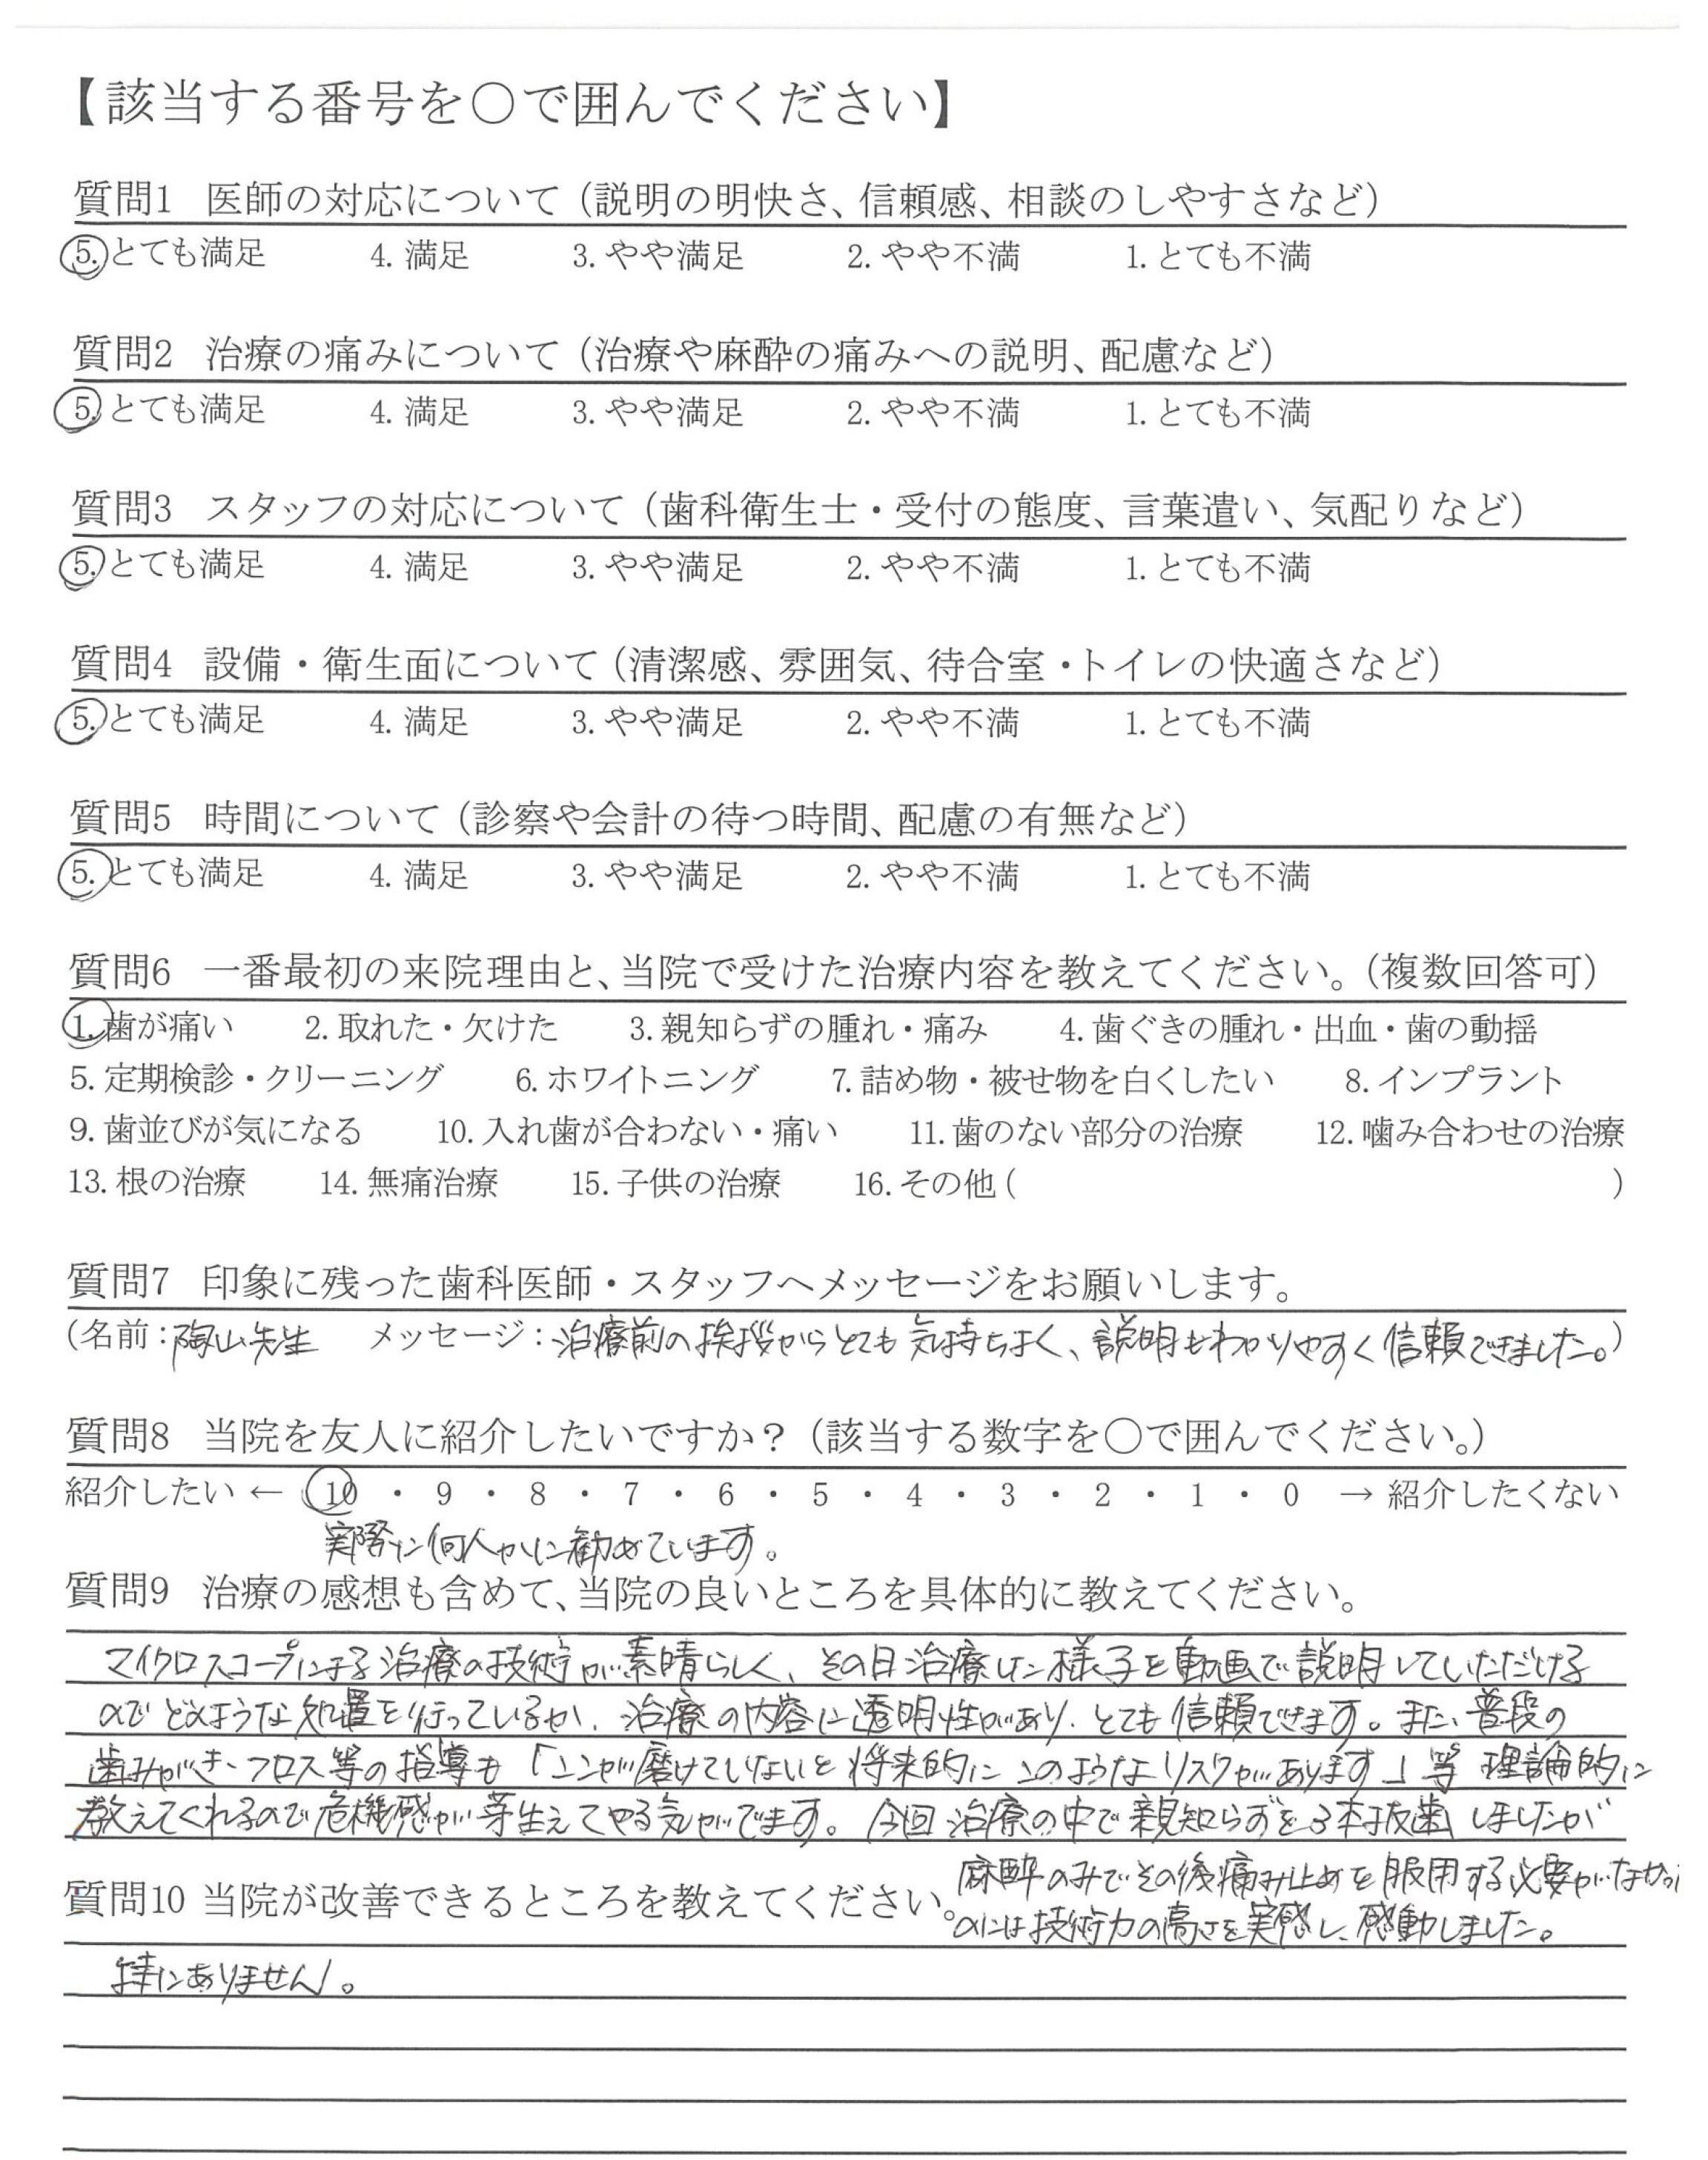 【該当する番号を○で囲んでください】
質問1 医師の対応について（説明の明快さ、信頼感、相談のしやすさなど）
5. とても満足 4. 満足 3. やや満足 2. やや不満 1. とても不満
質問2 治療の痛みについて（治療や麻酔の痛みへの説明、配慮など）
5. とても満足 4. 満足 3. やや満足 2. やや不満 1. とても不満
質問3 スタッフの対応について（歯科衛生士・受付の態度、言葉遣い、気配りなど）
5. とても満足 4. 満足 3. やや満足 2. やや不満 1. とても不満
質問4 設備・衛生面について（清潔感、雰囲気、待合室・トイレの快適さなど）
5. とても満足 4. 満足 3. やや満足 2. やや不満 1. とても不満
質問5 時間について（診察や会計の待つ時間、配慮の有無など）
5. とても満足 4. 満足 3. やや満足 2. やや不満 1. とても不満
質問6 一番最初の来院理由と、当院で受けた治療内容を教えてください。（複数回答可）
1. 歯が痛い 2. 取れた・欠けた 3. 親知らずの腫れ・痛み 4. 歯ぐきの腫れ・出血・歯の動揺
5. 定期検診・クリーニング 6. ホワイトニング 7. 詰め物・被せ物を白くしたい 8. インプラント
9. 歯並びが気になる 10. 入れ歯が合わない・痛い 11. 歯のない部分の治療 12. 噛み合わせの治療
13. 根の治療 14. 無痛治療 15. 子供の治療 16. その他（ ）
質問7 印象に残った歯科医師・スタッフへメッセージをお願いします。
（名前：陶山先生 メッセージ：治療前の挨拶からとても気持ちよく、説明もわかりやすく信頼できました。）
質問8 当院を友人に紹介したいですか？（該当する数字を○で囲んでください。）
紹介したい ← 10 ・ 9 ・ 8 ・ 7 ・ 6 ・ 5 ・ 4 ・ 3 ・ 2 ・ 1 ・ 0 → 紹介したくない
実際に何人かに勧めています。
質問9 治療の感想も含めて、当院の良いところを具体的に教えてください。
マイクロスコープによる治療の技術が素晴らしく、その日治療した様子を動画で説明していただける
のでどのような処置を行っているか、治療の内容に透明性があり、とても信頼できます。また、普段の
歯みがき・フロス等の指導も「ここが磨けていないと将来的にこのようなリスクがあります」等 理論的に
教えてくれるので危機感が芽生えてやる気がでます。今回治療の中で親知らずを3本抜歯しましたが
麻酔のみでその後痛み止めを服用する必要がなかった
のには技術力の高さを実感し、感動しました。
質問10 当院が改善できるところを教えてください。
特にありません。